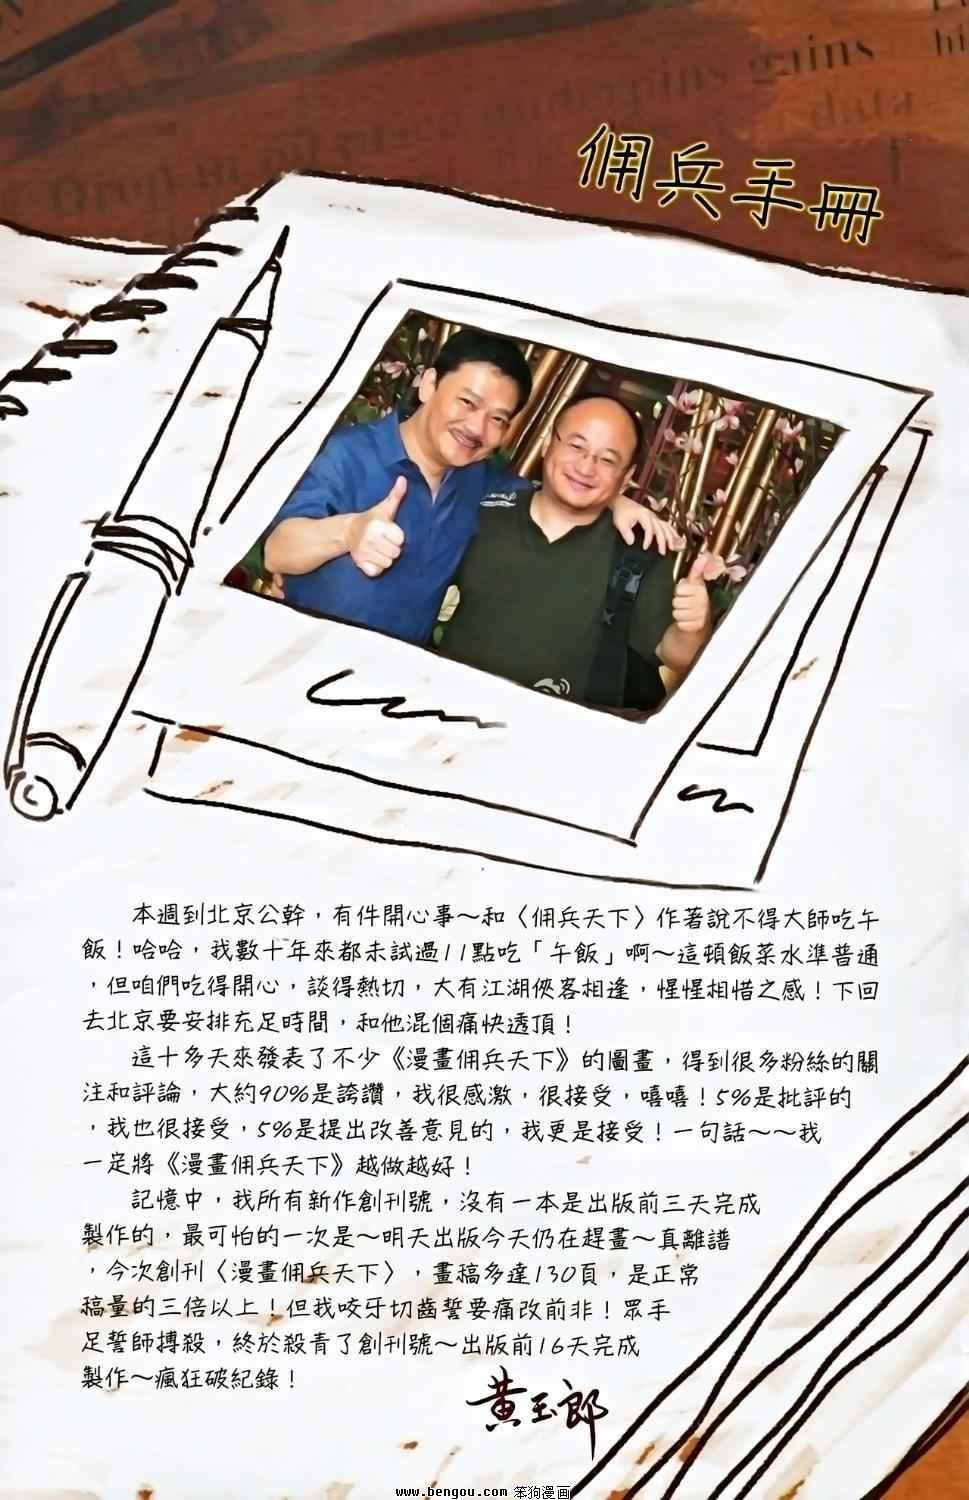 Drop in oil price underpins gains
data
hi
傭兵手冊
本週到北京公幹，有件開心事～和〈傭兵天下〉作著說不得大師吃午
飯！哈哈，我數十年來都未試過11點吃「午飯」啊～這頓飯菜水準普通
，但咱們吃得開心，談得熱切，大有江湖俠客相逢，惺惺相惜之感！下回
去北京要安排充足時間，和他混個痛快透頂！
這十多天來發表了不少《漫畫傭兵天下》的圖畫，得到很多粉絲的關
注和評論，大約90%是誇讚，我很感激，很接受，嘻嘻！5%是批評的
，我也很接受，5%是提出改善意見的，我更是接受！一句話～～我
一定將《漫畫傭兵天下》越做越好！
記憶中，我所有新作創刊號，沒有一本是出版前三天完成
製作的，最可怕的一次是～明天出版今天仍在趕畫～真離譜
，今次創刊〈漫畫傭兵天下〉，畫稿多達130頁，是正常
稿量的三倍以上！但我咬牙切齒誓要痛改前非！眾手
足誓師搏殺，終於殺青了創刊號～出版前16天完成
製作～瘋狂破紀錄！
黃玉郎
www.bengou.com 笨狗漫画